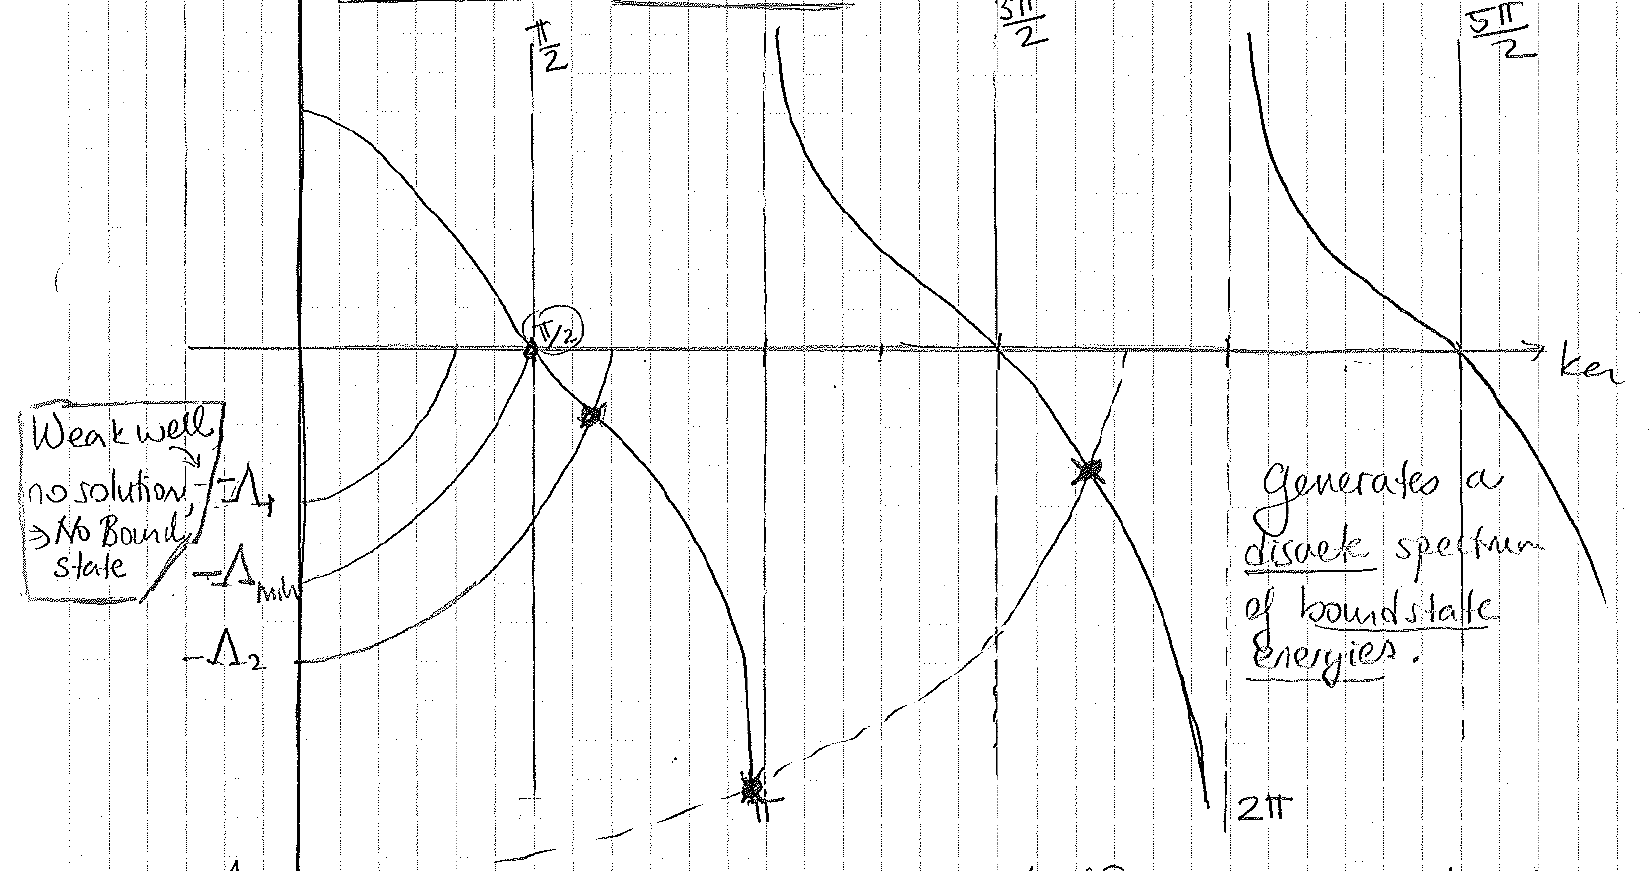 π/2
3π/2
5π/2
π/2
Weak well
no solution,
⇒ No Bound
state
-Λ₁
-Λmin
-Λ₂
Generates a
discrete spectrum
of bound state
energies.
2π